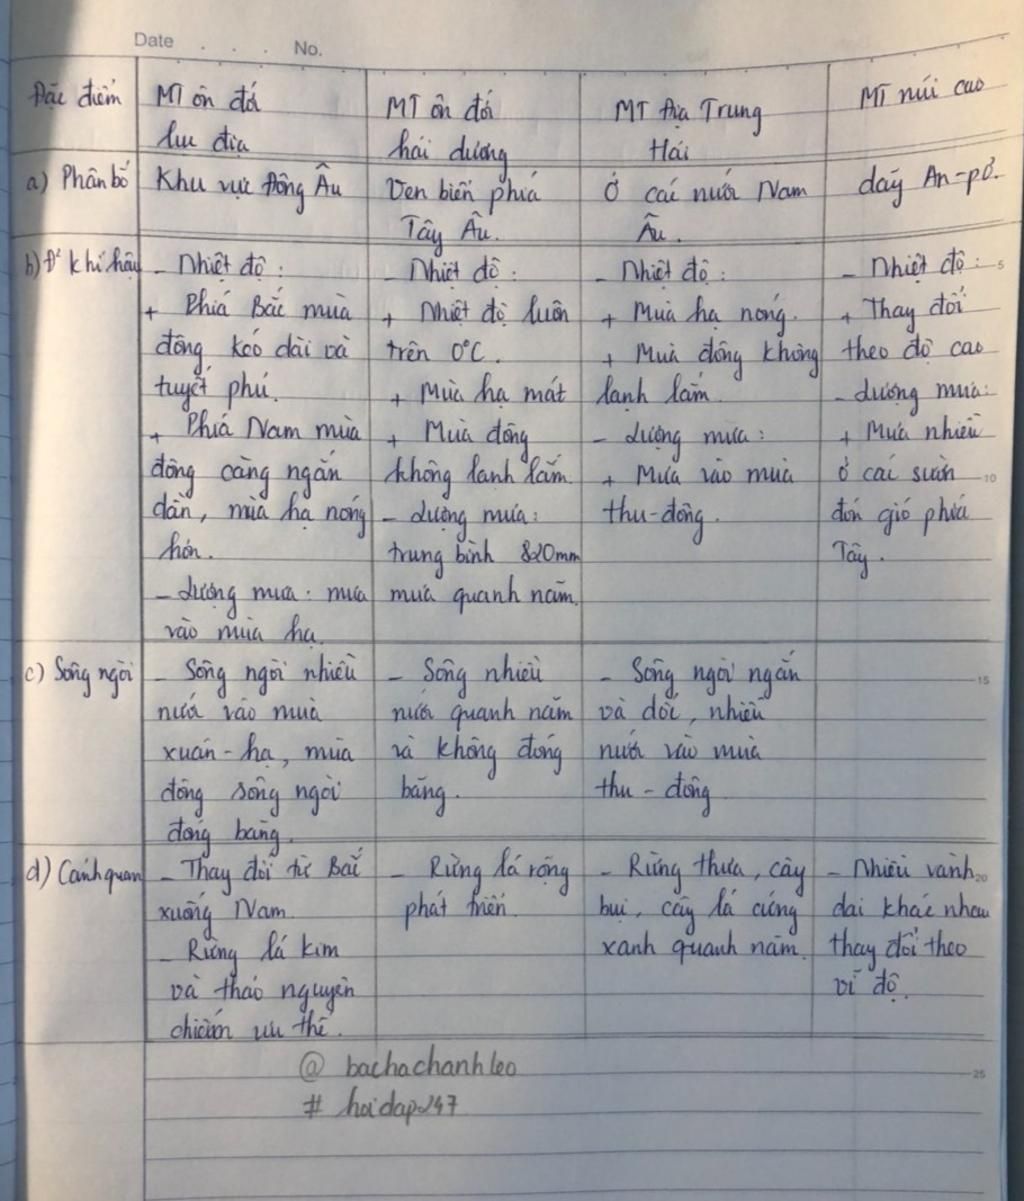 Date . . . No.
Đặc điểm
MT ôn đới
lục địa
MT ôn đới
hải dương
MT Địa Trung
Hải
MT núi cao
a) Phân bố
Khu vực Đông Âu
Ven biển phía
Tây Âu.
Ở các nước Nam
Âu.
dãy An-pơ.
b) Đ² khí hậu
- Nhiệt độ:
+ Phía Bắc mùa
đông kéo dài và
tuyết phủ.
+ Phía Nam mùa
đông càng ngắn
dần, mùa hạ nóng
hơn.
- Lượng mưa: mưa
vào mùa hạ.
- Nhiệt độ:
+ Nhiệt độ luôn
trên 0°C.
+ Mùa hạ mát
+ Mùa đông
không lạnh lắm.
- Lượng mưa:
trung bình 820mm
mưa quanh năm.
- Nhiệt độ:
+ Mùa hạ nóng.
+ Mùa đông không
lạnh lắm.
- Lượng mưa:
+ Mưa vào mùa
thu-đông.
- Nhiệt độ:
+ Thay đổi
theo độ cao
- Lượng mưa:
+ Mưa nhiều
ở các sườn
đón gió phía
Tây.
5
10
c) Sông ngòi
- Sông ngòi nhiều
nước vào mùa
xuân-hạ, mùa
đông sông ngòi
đóng băng.
- Sông nhiều
nước quanh năm
và không đóng
băng.
- Sông ngòi ngắn
và dốc, nhiều
nước vào mùa
thu-đông
15
d) Cảnh quan
- Thay đổi từ Bắc
xuống Nam.
- Rừng lá kim
và thảo nguyên
chiếm ưu thế.
- Rừng lá rộng
phát triển.
- Rừng thưa, cây
bụi, cây lá cứng
xanh quanh năm.
- Nhiều vành
đai khác nhau
thay đổi theo
vĩ độ.
20
@ bachachanhleo
# hoidap247
25